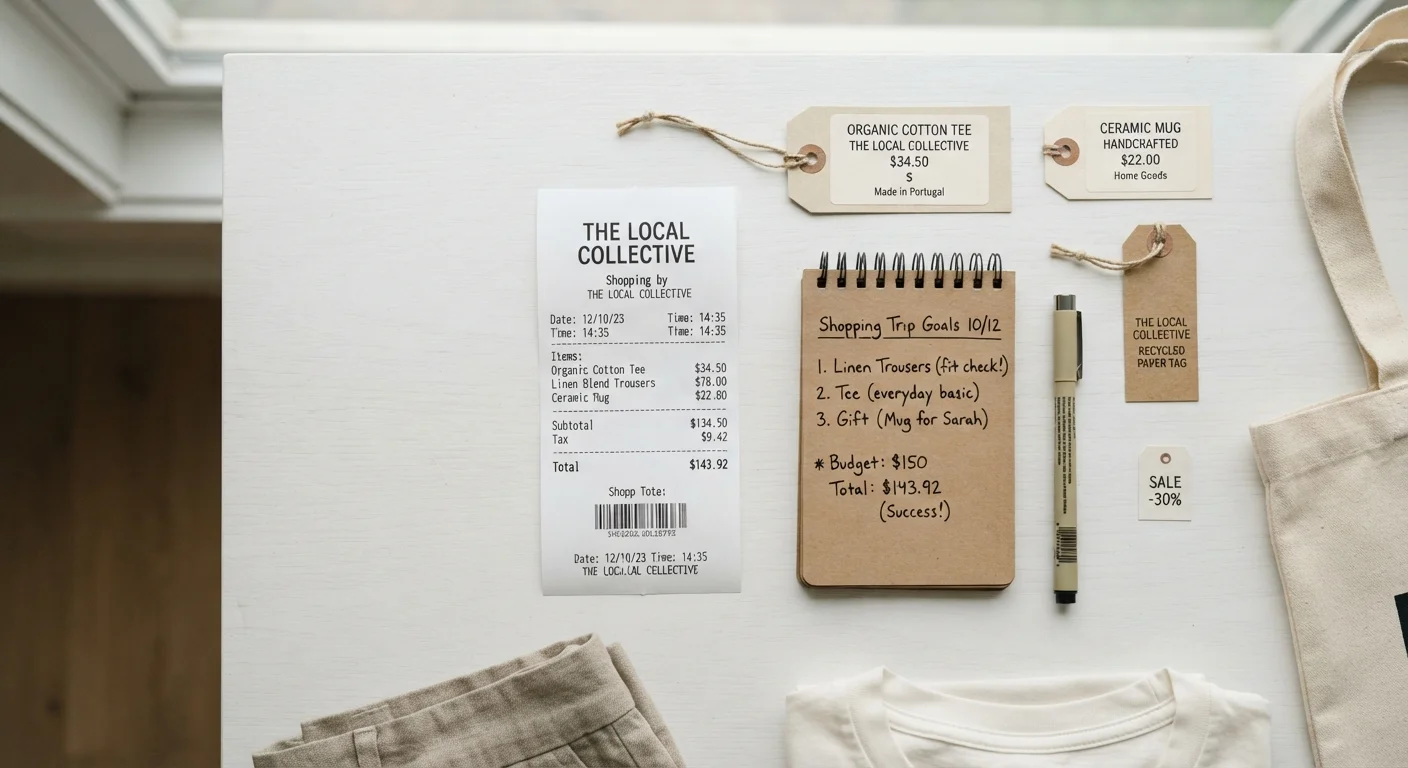 THE LOCAL
COLLECTIVE
Shopping by
THE LOCAL COLLECTIVE
Date: 12/10/23 Time: 14:35
Time: 14:35 Time: 14:35
Items:
Organic Cotton Tee $34.50
Linen Blend Trousers $78.00
Ceramic Mug $22.80
Subtotal $134.50
Tax $9.42
Total $143.92
Shopp Tote:
Date: 12/10/23 Time: 14:35
THE LOCAL CELLECTIVE
ORGANIC COTTON TEE
THE LOCAL COLLECTIVE
$34.50
S
Made in Portugal
CERAMIC MUG
HANDCRAFTED
$22.00
Home Goods
Shopping Trip Goals 10/12
1. Linen Trousers (fit check!)
2. Tee (everyday basic)
3. Gift (Mug for Sarah)
* Budget: $150
Total: $143.92
(Success!)
THE LOCAL
COLLECTIVE
RECYCLED
PAPER TAG
SALE
-30%